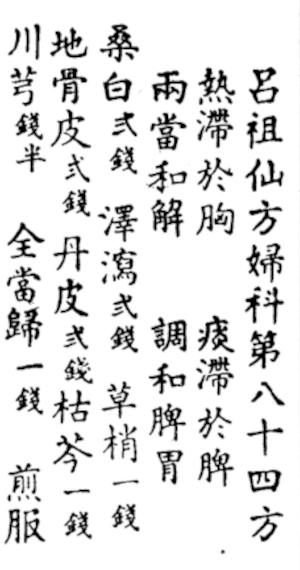 呂祖仙方婦科第八十四方
熱滯於胸 痰滯於脾
兩當和解 調和脾胃
桑白弍錢 澤瀉弍錢 草梢一錢
地骨皮弍錢 丹皮弍錢 枯芩一錢
川芎錢半 全當歸一錢 煎服